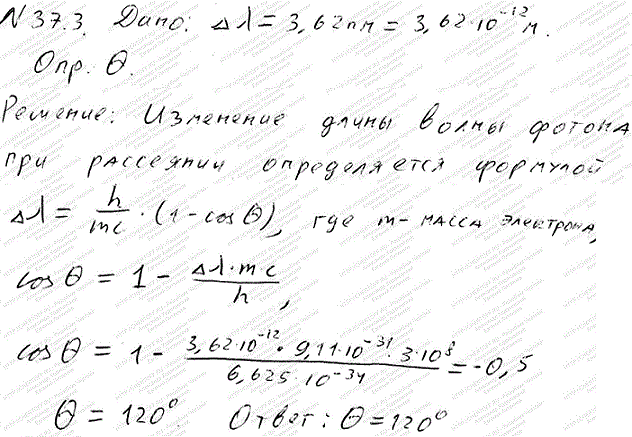 N 37.3. Дано: Δλ = 3,62пм = 3,62·10⁻¹² м.
Опр. Θ.
Решение: Изменение длины волны фотона
при рассеянии определяется формулой
Δλ = h/mc · (1 - cos Θ), где m - масса электрона,
cos Θ = 1 - Δλ·m·c/h,
cos Θ = 1 - 3,62·10⁻¹²·9,11·10⁻³¹·3·10⁸/6,625·10⁻³⁴ = -0,5
Θ = 120°. Ответ: Θ = 120°